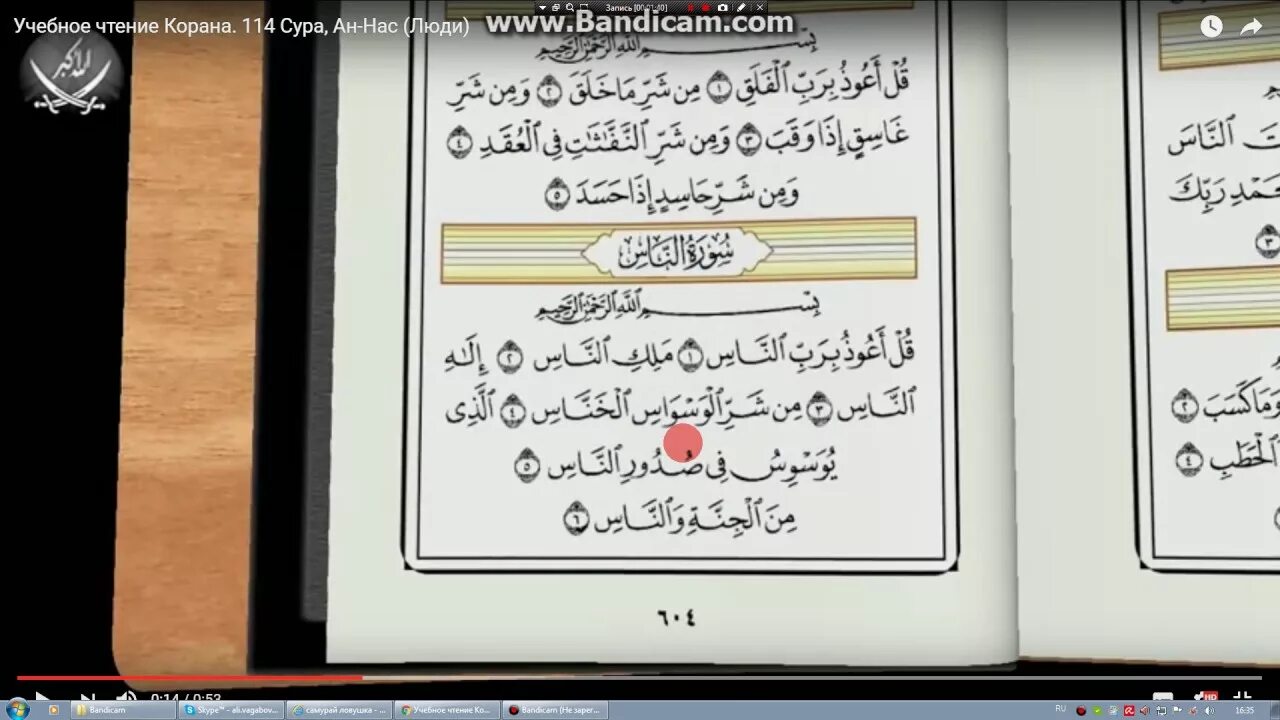 Запись [00:01:10]
Учебное чтение Корана. 114 Сура, Ан-Нас (Люди)
www.Bandicam.com
الله اكبر
بِسْمِ اللَّهِ الرَّحْمَٰنِ الرَّحِيمِ
قُلْ أَعُوذُ بِرَبِّ ٱلْفَلَقِ ١ مِن شَرِّ مَا خَلَقَ ٢ وَمِن شَرِّ
غَاسِقٍ إِذَا وَقَبَ ٣ وَمِن شَرِّ ٱلنَّفَّٰثَٰتِ فِى ٱلْعُقَدِ ٤
وَمِن شَرِّ حَاسِدٍ إِذَا حَسَدَ ٥
سُورَةُ النَّاسِ
بِسْمِ اللَّهِ الرَّحْمَٰنِ الرَّحِيمِ
قُلْ أَعُوذُ بِرَبِّ ٱلنَّاسِ ١ مَلِكِ ٱلنَّاسِ ٢ إِلَٰهِ
ٱلنَّاسِ ٣ مِن شَرِّ ٱلْوَسْوَاسِ ٱلْخَنَّاسِ ٤ ٱلَّذِى
يُوَسْوِسُ فِى صُدُورِ ٱلنَّاسِ ٥
مِنَ ٱلْجِنَّةِ وَٱلنَّاسِ ٦
٦٠٤
ٱلنَّاسَ
رَبِّكَ
٣
وَمَا كَسَبَ ٢
ٱلْحَطَبِ ٤
0:14 / 0:53
HD
Bandicam
Skype™ - ali.vagabov...
самурай ловушка - ...
Учебное чтение Ко...
Bandicam (Не зарег...
RU
16:35